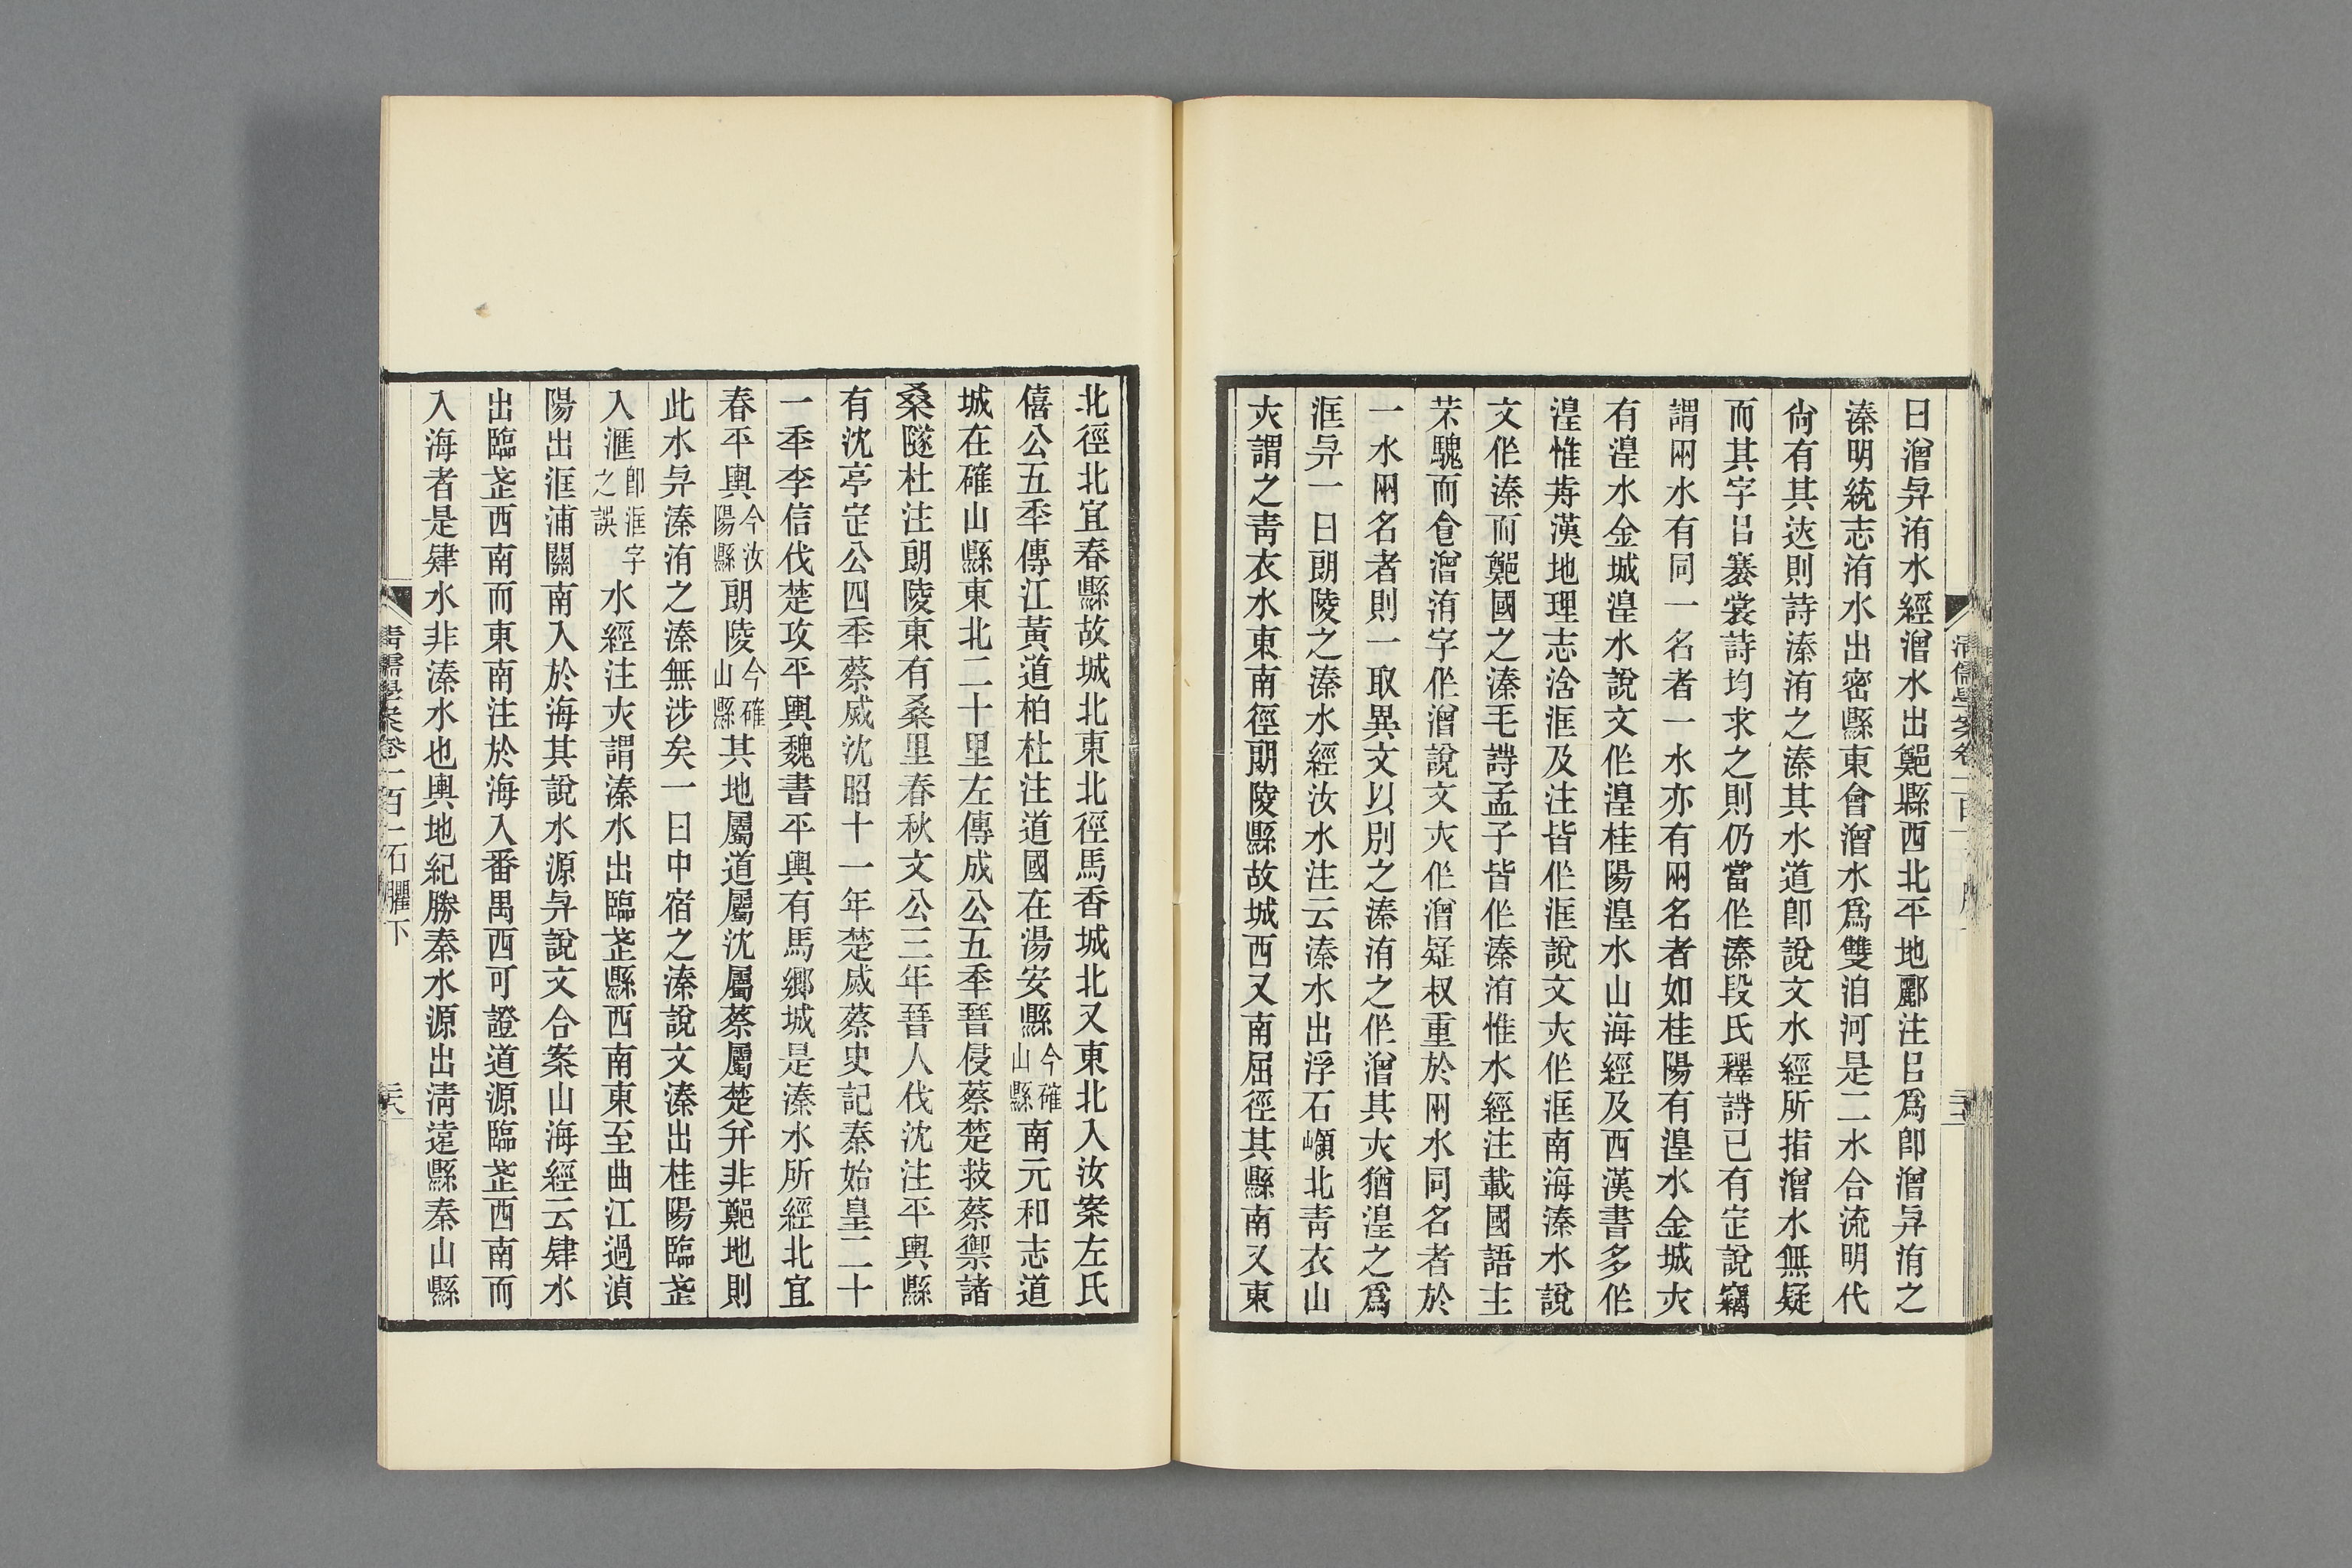 曰潧㒜洧水經潧水出鄭縣西北平地酈注㠯爲卽潧㒜洧之
溱明統志洧水出密縣東會潧水爲雙洎河是二水合流明代
尙有其迹則詩溱洧之溱其水道卽說文水經所指潧水無疑
而其字㠯褰裳詩均求之則仍當作溱段氏釋詩已有定說竊
謂兩水有同一名者一水亦有兩名者如桂陽有湟水金城亦
有湟水金城湟水說文作湟桂陽湟水山海經及西漢書多作
湟惟歬漢地理志浛洭及注皆作洭說文亦作洭南海溱水說
文作溱而鄭國之溱毛詩孟子皆作溱洧惟水經注載國語主
芣騩而食潧洧字作潧說文亦作潧疑叔重於兩水同名者於
一水兩名者則一取異文以別之溱洧之作潧其亦猶湟之爲
洭㒜一曰朗陵之溱水經汝水注云溱水出浮石嶺北靑衣山
亦謂之靑衣水東南徑朗陵縣故城西又南屈徑其縣南又東
淸儒學案卷二百一
北徑北宜春縣故城北東北徑馬香城北又東北入汝案左氏
僖公五年傳江黃道柏杜注道國在湯安縣今確山縣南元和志道
城在確山縣東北二十里左傳成公五年晉侵蔡楚救蔡禦諸
桑隧杜注朗陵東有桑里春秋文公三年晉人伐沈注平輿縣
有沈亭定公四年蔡滅沈昭十一年楚滅蔡史記秦始皇二十
一年李信伐楚攻平輿魏書平輿有馬鄉城是溱水所經北宜
春平輿今汝陽縣朗陵今確山縣其地屬道屬沈屬蔡屬楚幷非鄭地則
此水㒜溱洧之溱無涉矣一曰中宿之溱說文溱出桂陽臨武
入滙卽洭字之誤水經注亦謂溱水出臨武縣西南東至曲江過湞
陽出洭浦關南入於海其說水源㒜說文合案山海經云肄水
出臨武西南而東南注於海入番禺西可證道源臨武西南而
入海者是肄水非溱水也輿地紀勝秦水源出淸遠縣秦山縣
淸儒學案卷二百一 石臞下 三六